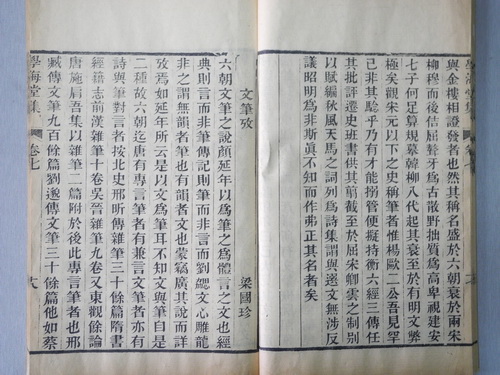 與金樓相證發者也然其稱名盛於六朝衰於兩宋
柳穆而後佶屈聱牙爲古散野拙質爲高卑視建安
七子何足算規摹韓柳八代起其衰至於有明文弊
極矣觀宋元以下之史稱筆者惟楊歐二公吾見罕
已非其驗乎乃有才能搦管便擬持衡六經三傳任
其批評遷史班書供其剪截至於屈宋卿雲之制別
以賦編秋風天馬之詞列於詩集謂與選文無涉反
議昭明爲非斯眞不知而作弗正其名者矣
文筆攷
梁國珍
六朝文筆之說顏延年以爲筆之爲體言之文也經
典則言而非筆傳記則筆而非言而劉勰文心雕龍
非之謂無韻者筆也有韻者文也蒙竊廣其說而詳
攷焉如延年所云是以文爲筆耳不知文與筆自是
二種故六朝迄唐有專言筆者有兼言文筆者亦有
詩與筆對言者按北史邢昕傳雜筆三十餘篇隋書
經籍志前漢雜筆十卷吳晉雜筆九卷又東觀餘論
唐施肩吾集以雜筆二篇附於後此專言筆者也邢
臧傳文筆九百餘篇劉邈傳文筆三十餘篇他如蔡
學海堂集
卷七
十八